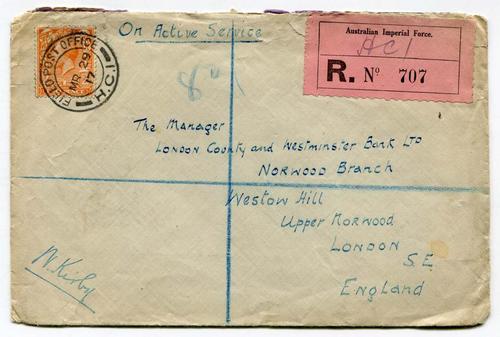 On Active Service
FIELD POST OFFICE
MR 29
17
H.C.1
Australian Imperial Force.
HC1
R. No 707
The Manager
London County and Westminster Bank Ltd
Norwood Branch
Westow Hill
Upper Norwood
London
S.E.
England
W. Kirby